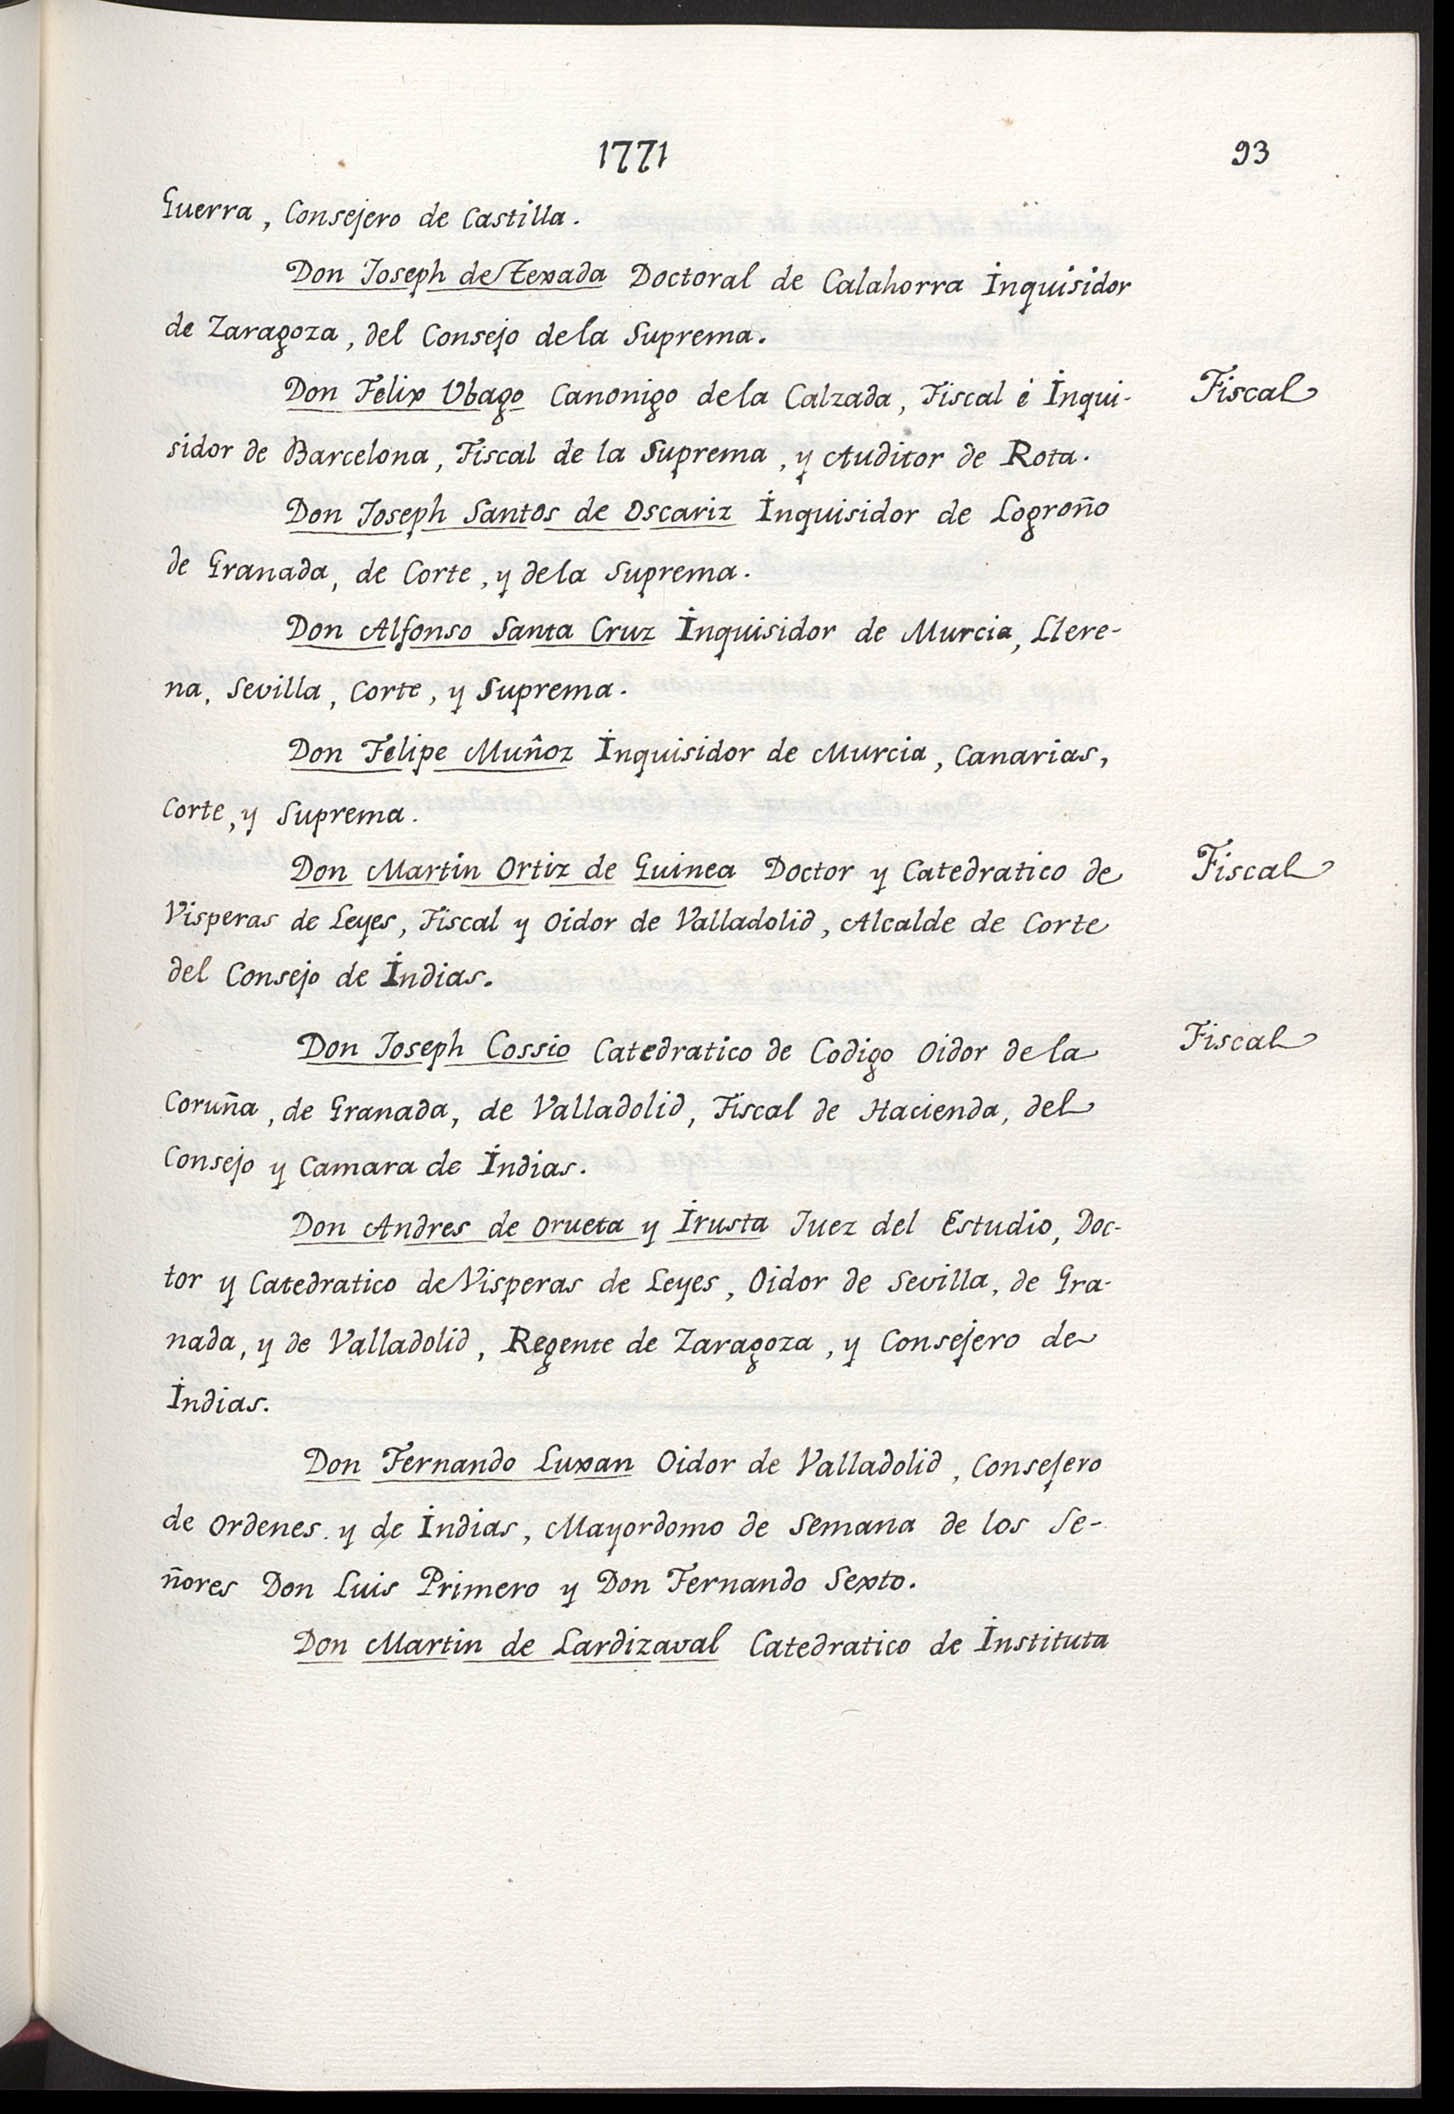 1771
93
Guerra, Consejero de Castilla.
Don Joseph de Texada Doctoral de Calahorra Inquisidor
de Zaragoza, del Consejo dela Suprema.
Don Felix Ubago Canonigo dela Calzada, Fiscal é Inqui-
Fiscal
sidor de Barcelona, Fiscal de la Suprema, y Auditor de Rota.
Don Joseph Santos de Oscariz Inquisidor de Logroño
de Granada, de Corte, y dela Suprema.
Don Alfonso Santa Cruz Inquisidor de Murcia, Llere-
na, Sevilla, Corte, y Suprema.
Don Felipe Muñoz Inquisidor de Murcia, Canarias,
Corte, y Suprema.
Don Martin Ortiz de Guinea Doctor y Catedratico de
Fiscal
Visperas de Leyes, Fiscal y Oidor de Valladolid, Alcalde de Corte
del Consejo de Indias.
Don Joseph Cossio Catedratico de Codigo Oidor de la
Fiscal
Coruña, de Granada, de Valladolid, Fiscal de Hacienda, del
Consejo y Camara de Indias.
Don Andres de Orueta y Irusta Juez del Estudio, Doc-
tor y Catedratico de Visperas de Leyes, Oidor de Sevilla, de Gra-
nada, y de Valladolid, Regente de Zaragoza, y Consejero de
Indias.
Don Fernando Luxan Oidor de Valladolid, Consejero
de Ordenes y de Indias, Mayordomo de Semana de los Se-
ñores Don Luis Primero y Don Fernando Sexto.
Don Martin de Lardizaval Catedratico de Instituta